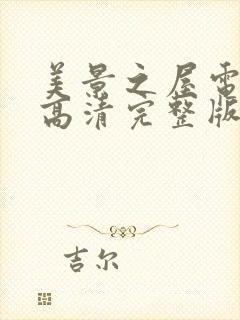 美景之屋电
高清完整版
吉尔